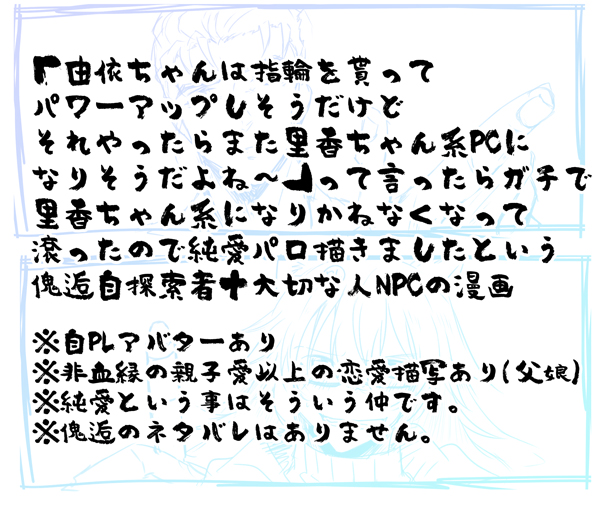 「由依ちゃんは指輪を貰って
パワーアップしそうだけど
それやったらまた里香ちゃん系PCに
なりそうだよね～」って言ったらガチで
里香ちゃん系になりかねなくなって
滾ったので純愛パロ描きましたという
傀逅自探索者+大切な人NPCの漫画
※自PLアバターあり
※非血縁の親子愛以上の恋愛描写あり(父娘)
※純愛という事はそういう仲です。
※傀逅のネタバレはありません。